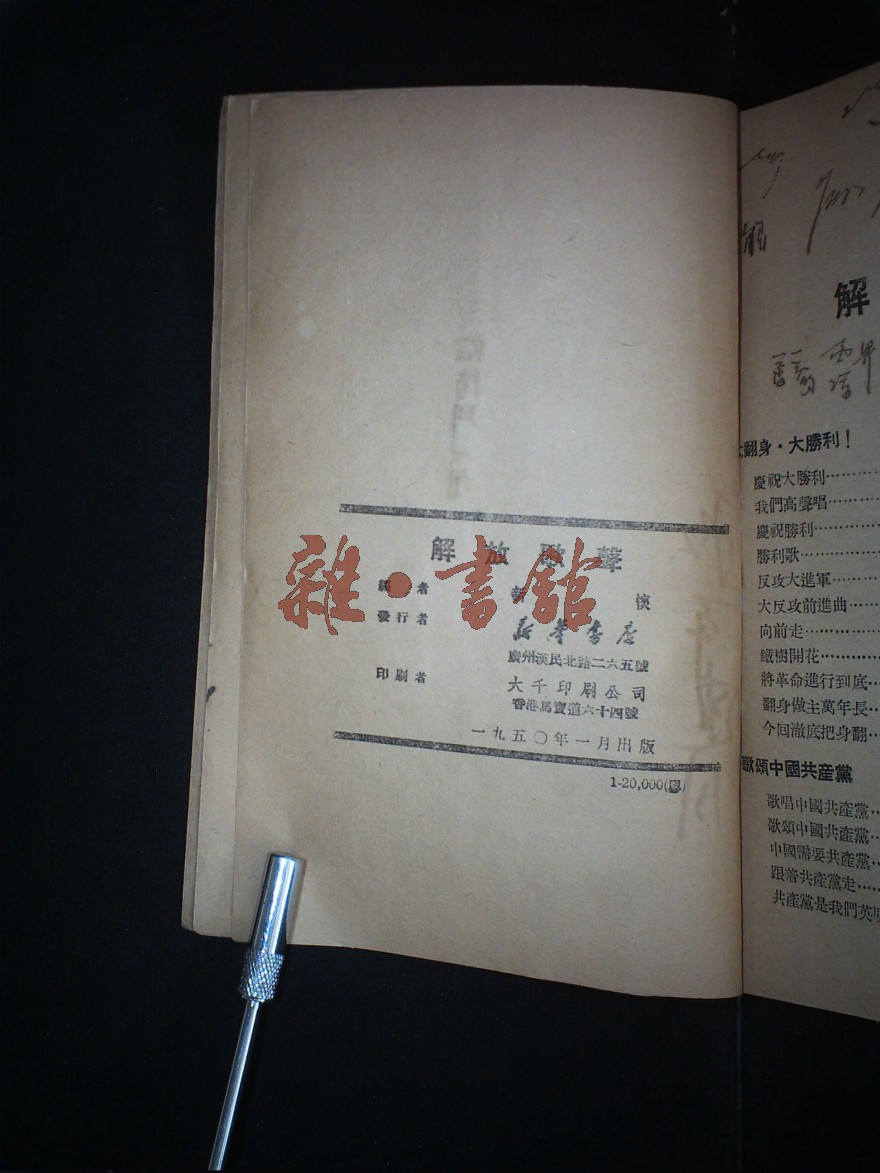 解放歌聲
者 懷
發行者 新華書店
廣州漢民北路二六五號
印刷者 大千印刷公司
香港馬寶道六十四號
一九五〇年一月出版
1-20,000(粵)
雜·書館
解
翻身·大勝利！
慶祝大勝利…………
我們高聲唱…………
慶祝勝利…………
勝利歌…………
反攻大進軍…………
大反攻前進曲……
向前走…………
鐵樹開花…………
將革命進行到底…
翻身做主萬年長…
今回澈底把身翻…
歌頌中國共產黨
歌唱中國共產黨…
歌頌中國共產黨…
中國需要共產黨…
跟着共產黨走……
共產黨是我們英明